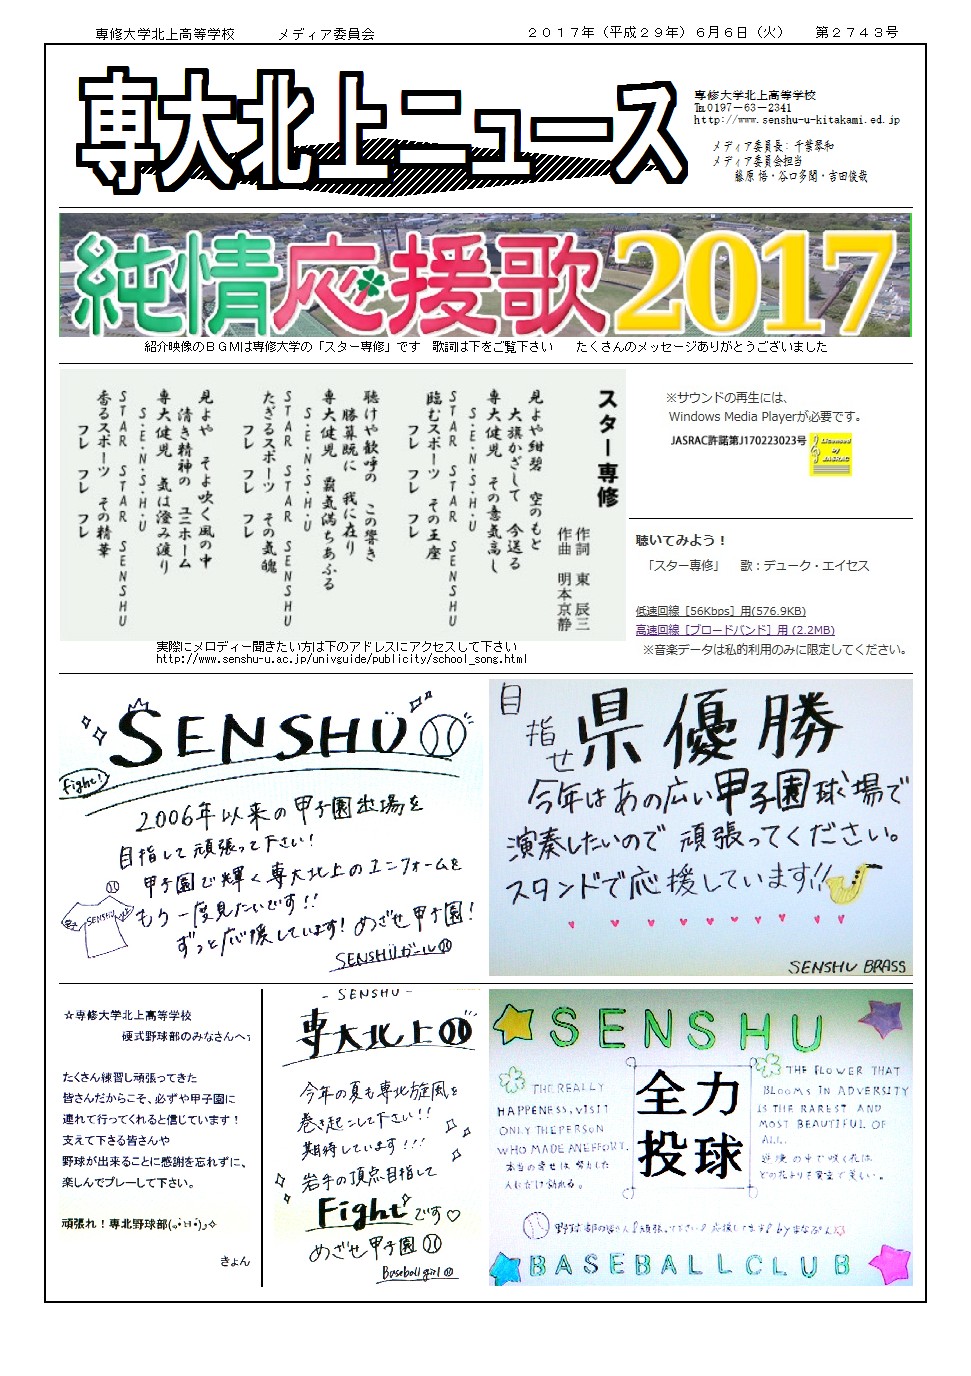 専修大学北上高等学校 メディア委員会 2017年（平成29年）6月6日（火） 第2743号
専大北上ニュース
専修大学北上高等学校
℡0197－63－2341
http://www.senshu-u-kitakami.ed.jp
メディア委員長：千葉琴和
メディア委員会担当
藤原 悟・谷口多聞・吉田俊哉
純情応援歌2017
紹介映像のＢＧＭは専修大学の「スター専修」です 歌詞は下をご覧下さい たくさんのメッセージありがとうございました
スター専修
作詞 東 辰三
作曲 明本京静
見よや紺碧 空のもと
大旗かざして 今送る
専大健児 その意気高し
S・E・N・S・H・U
STAR STAR SENSHU
臨むスポーツ その王座
フレ フレ フレ
聴けや歓呼の この響き
勝算既に 我に在り
専大健児 覇気満ちあふる
S・E・N・S・H・U
STAR STAR SENSHU
たぎるスポーツ その気魄
フレ フレ フレ
見よや そよ吹く風の中
清き精神の ユニホーム
専大健児 気は澄み渡り
S・E・N・S・H・U
STAR STAR SENSHU
香るスポーツ その精華
フレ フレ フレ
実際にメロディー聞きたい方は下のアドレスにアクセスして下さい
http://www.senshu-u.ac.jp/univguide/publicity/school_song.html
※サウンドの再生には、
Windows Media Playerが必要です。
JASRAC許諾第J170223023号
Licensed
by
JASRAC
聴いてみよう！
「スター専修」 歌：デューク・エイセス
低速回線［56Kbps］用(576.9KB)
高速回線［ブロードバンド］用 (2.2MB)
※音楽データは私的利用のみに限定してください。
SENSHU
Fight!
2006年以来の甲子園出場を
目指して頑張って下さい!
甲子園で輝く専大北上のユニフォームを
もう一度見たいです!!
ずっと応援しています! めざせ甲子園!
SENSHU
SENSHUガール
目指せ 県優勝
今年はあの広い甲子園球場で
演奏したいので 頑張ってください。
スタンドで応援しています!!
SENSHU BRASS
☆専修大学北上高等学校
硬式野球部のみなさんへ
たくさん練習し頑張ってきた
皆さんだからこそ、必ずや甲子園に
連れて行ってくれると信じています！
支えて下さる皆さんや
野球が出来ることに感謝を忘れずに、
楽しんでプレーして下さい。
頑張れ！専北野球部
きょん
- SENSHU -
専大北上
今年の夏も専北旋風を
巻き起こして下さい!!
期待しています!!!
岩手の頂点目指して
Fightです♡
めざせ甲子園
Baseball girl
SENSHU
THE REALLY
HAPPENESS, VISIT
ONLY THE PERSON
WHO MADE AN EFFORT.
本当の幸せは 努力した
人にだけ訪れる。
全力
投球
THE FLOWER THAT
BLOOMS IN ADVERSITY
IS THE RAREST AND
MOST BEAUTIFUL OF
ALL.
逆境の中で咲く花は
どの花よりも貴重で美しい。
野球部の皆さん!頑張って下さい!応援してます!
BASEBALL CLUB